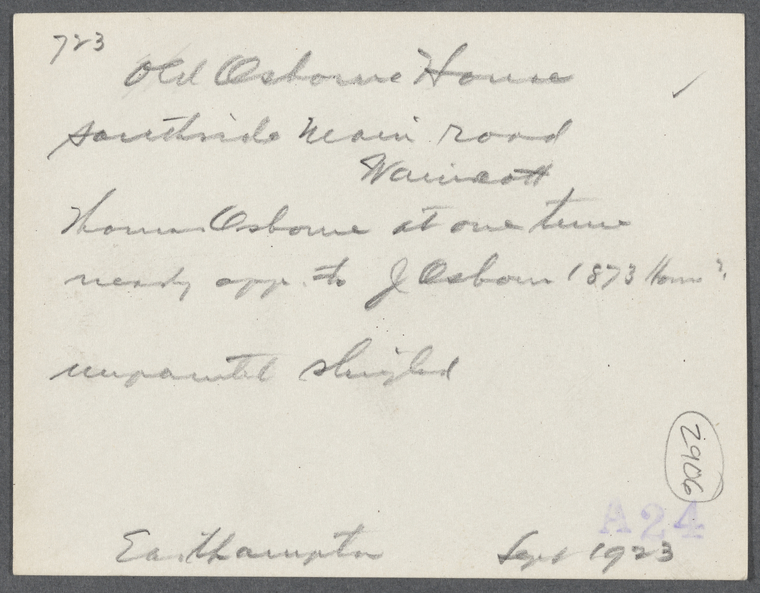 723
Old Osborne House ✓
Southside Main road
Wainscott
Thomas Osborne at one time
nearly opp. to J Osborn 1873 Home?
unpainted shingled
2906
A24
Easthampton Sept 1923